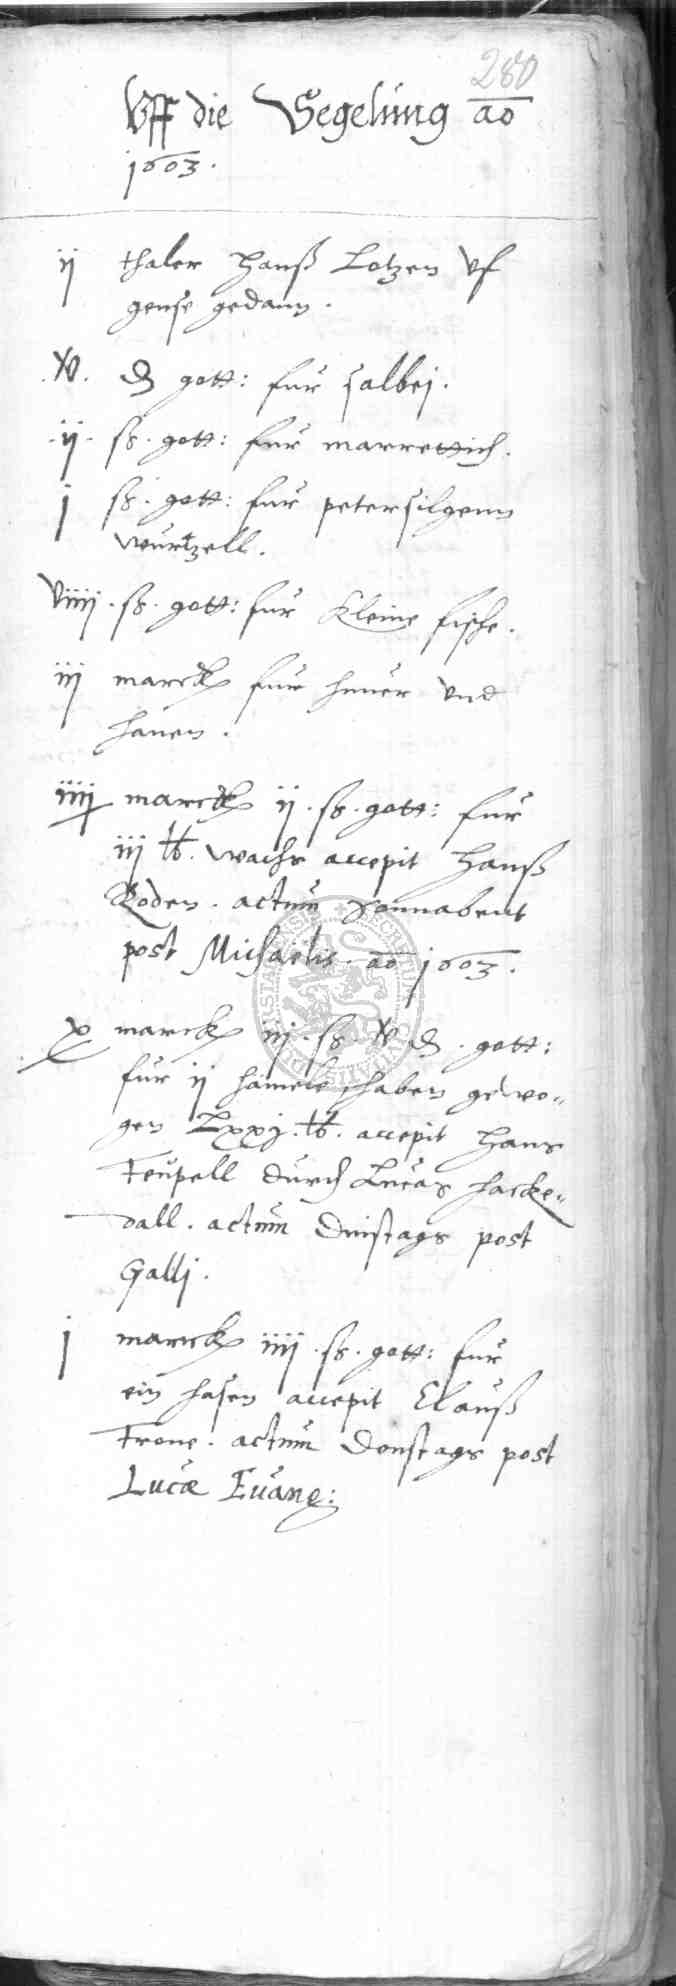 280
Vff die Segelung ao
1603.
ij thaler Hanß Lotzen vf
gense gedann.
.xv. d gott: fur salbej.
.ij. ß. gott: fur marrettich.
j ß. gott: fur petersilgenn
wurtzell.
viiij. ß. gott: fur kleine fische.
iij marck fur huner vnd
hanen.
iiij marck ij. ß. gott: fur
iij lb. wachs accepit Hanß
Roden. actum Sonnabent
post Michaelis. ao 1603.
x marck iij. ß. xv d. gott:
fur ij hämele, haben gewo„
gen Lxxj. lb. accepit Hans
Teupell durch Lucas Hacke„
dall. actum Dinstags post
Galli.
j marck iiij. ß. gott: fur
ein hasen accepit Clauß
Trone. actum Donstags post
Lucæ Euang: